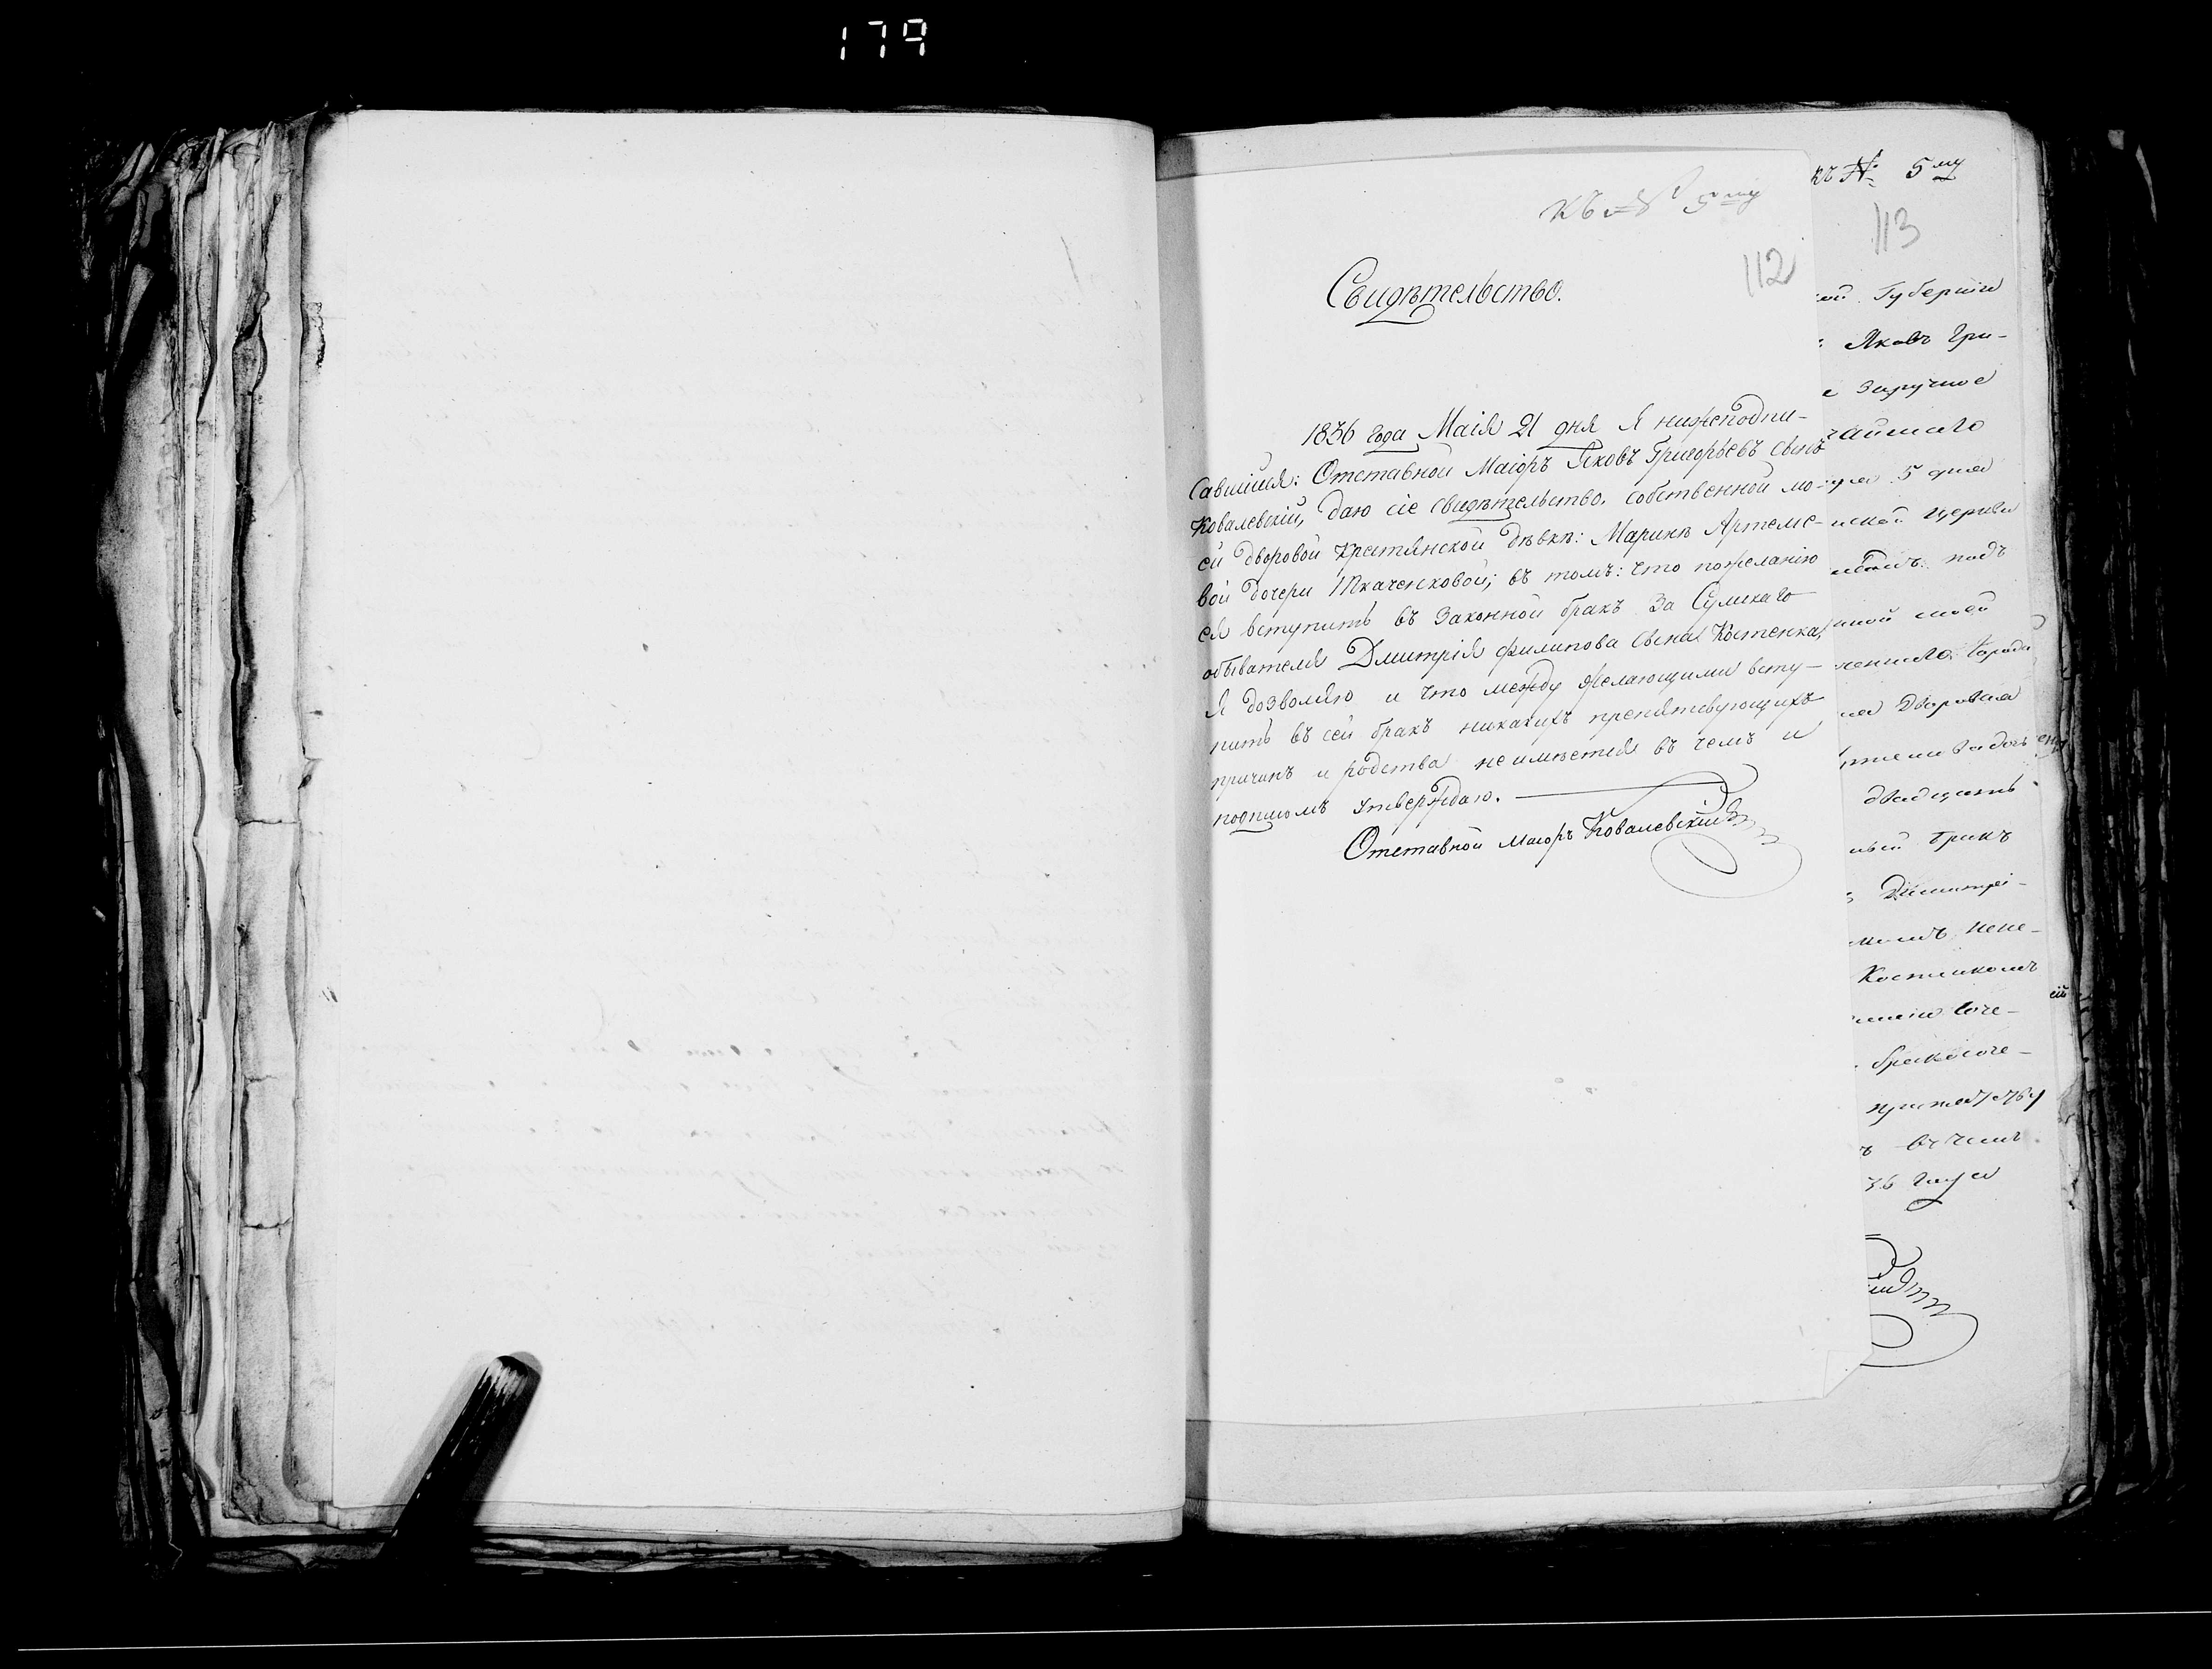 179
къ № 5му
112
Свидѣтельство.
1836 года Маія 21 дня я нижеподпи-
савшійся: Отставной Маіоръ Яковъ Григорьевъ сынъ
Ковалевскій, даю сіе свидѣтельство, собственной мо-
ей дворовой крестянской дѣвкѣ: Маринѣ Артеме-
вой дочери Ткаченковой; въ томъ: что пожеланію
ея вступить въ законной бракъ за Сумскаго
обывателя Дмитрія Филипова сына Костенка,
я дозволяю и что между желающими всту-
пить въ сей бракъ никакихъ препятствующихъ
причинъ и родства неимѣется въ чемъ и
подписомъ утверждаю.
Отставной маіоръ Ковалевскій
къ № 5му
113
Губерніи
Яковъ Гри-
заручное
5 дня
церкви
подъ
моей
города
дворовая
двадцать
бракъ
Димитрі-
Костенкомъ
соче-
бракосоче-
въ чемъ
36 года